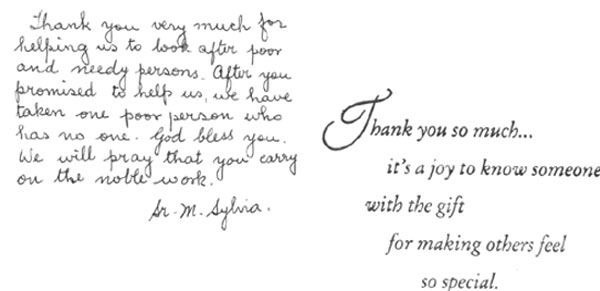 Thank you very much for
helping us to look after poor
and needy persons. After you
promised to help us, we have
taken one poor person who
has no one. God bless you.
We will pray that you carry
on the noble work.
Sr. M. Sylvia.
Thank you so much...
it's a joy to know someone
with the gift
for making others feel
so special.